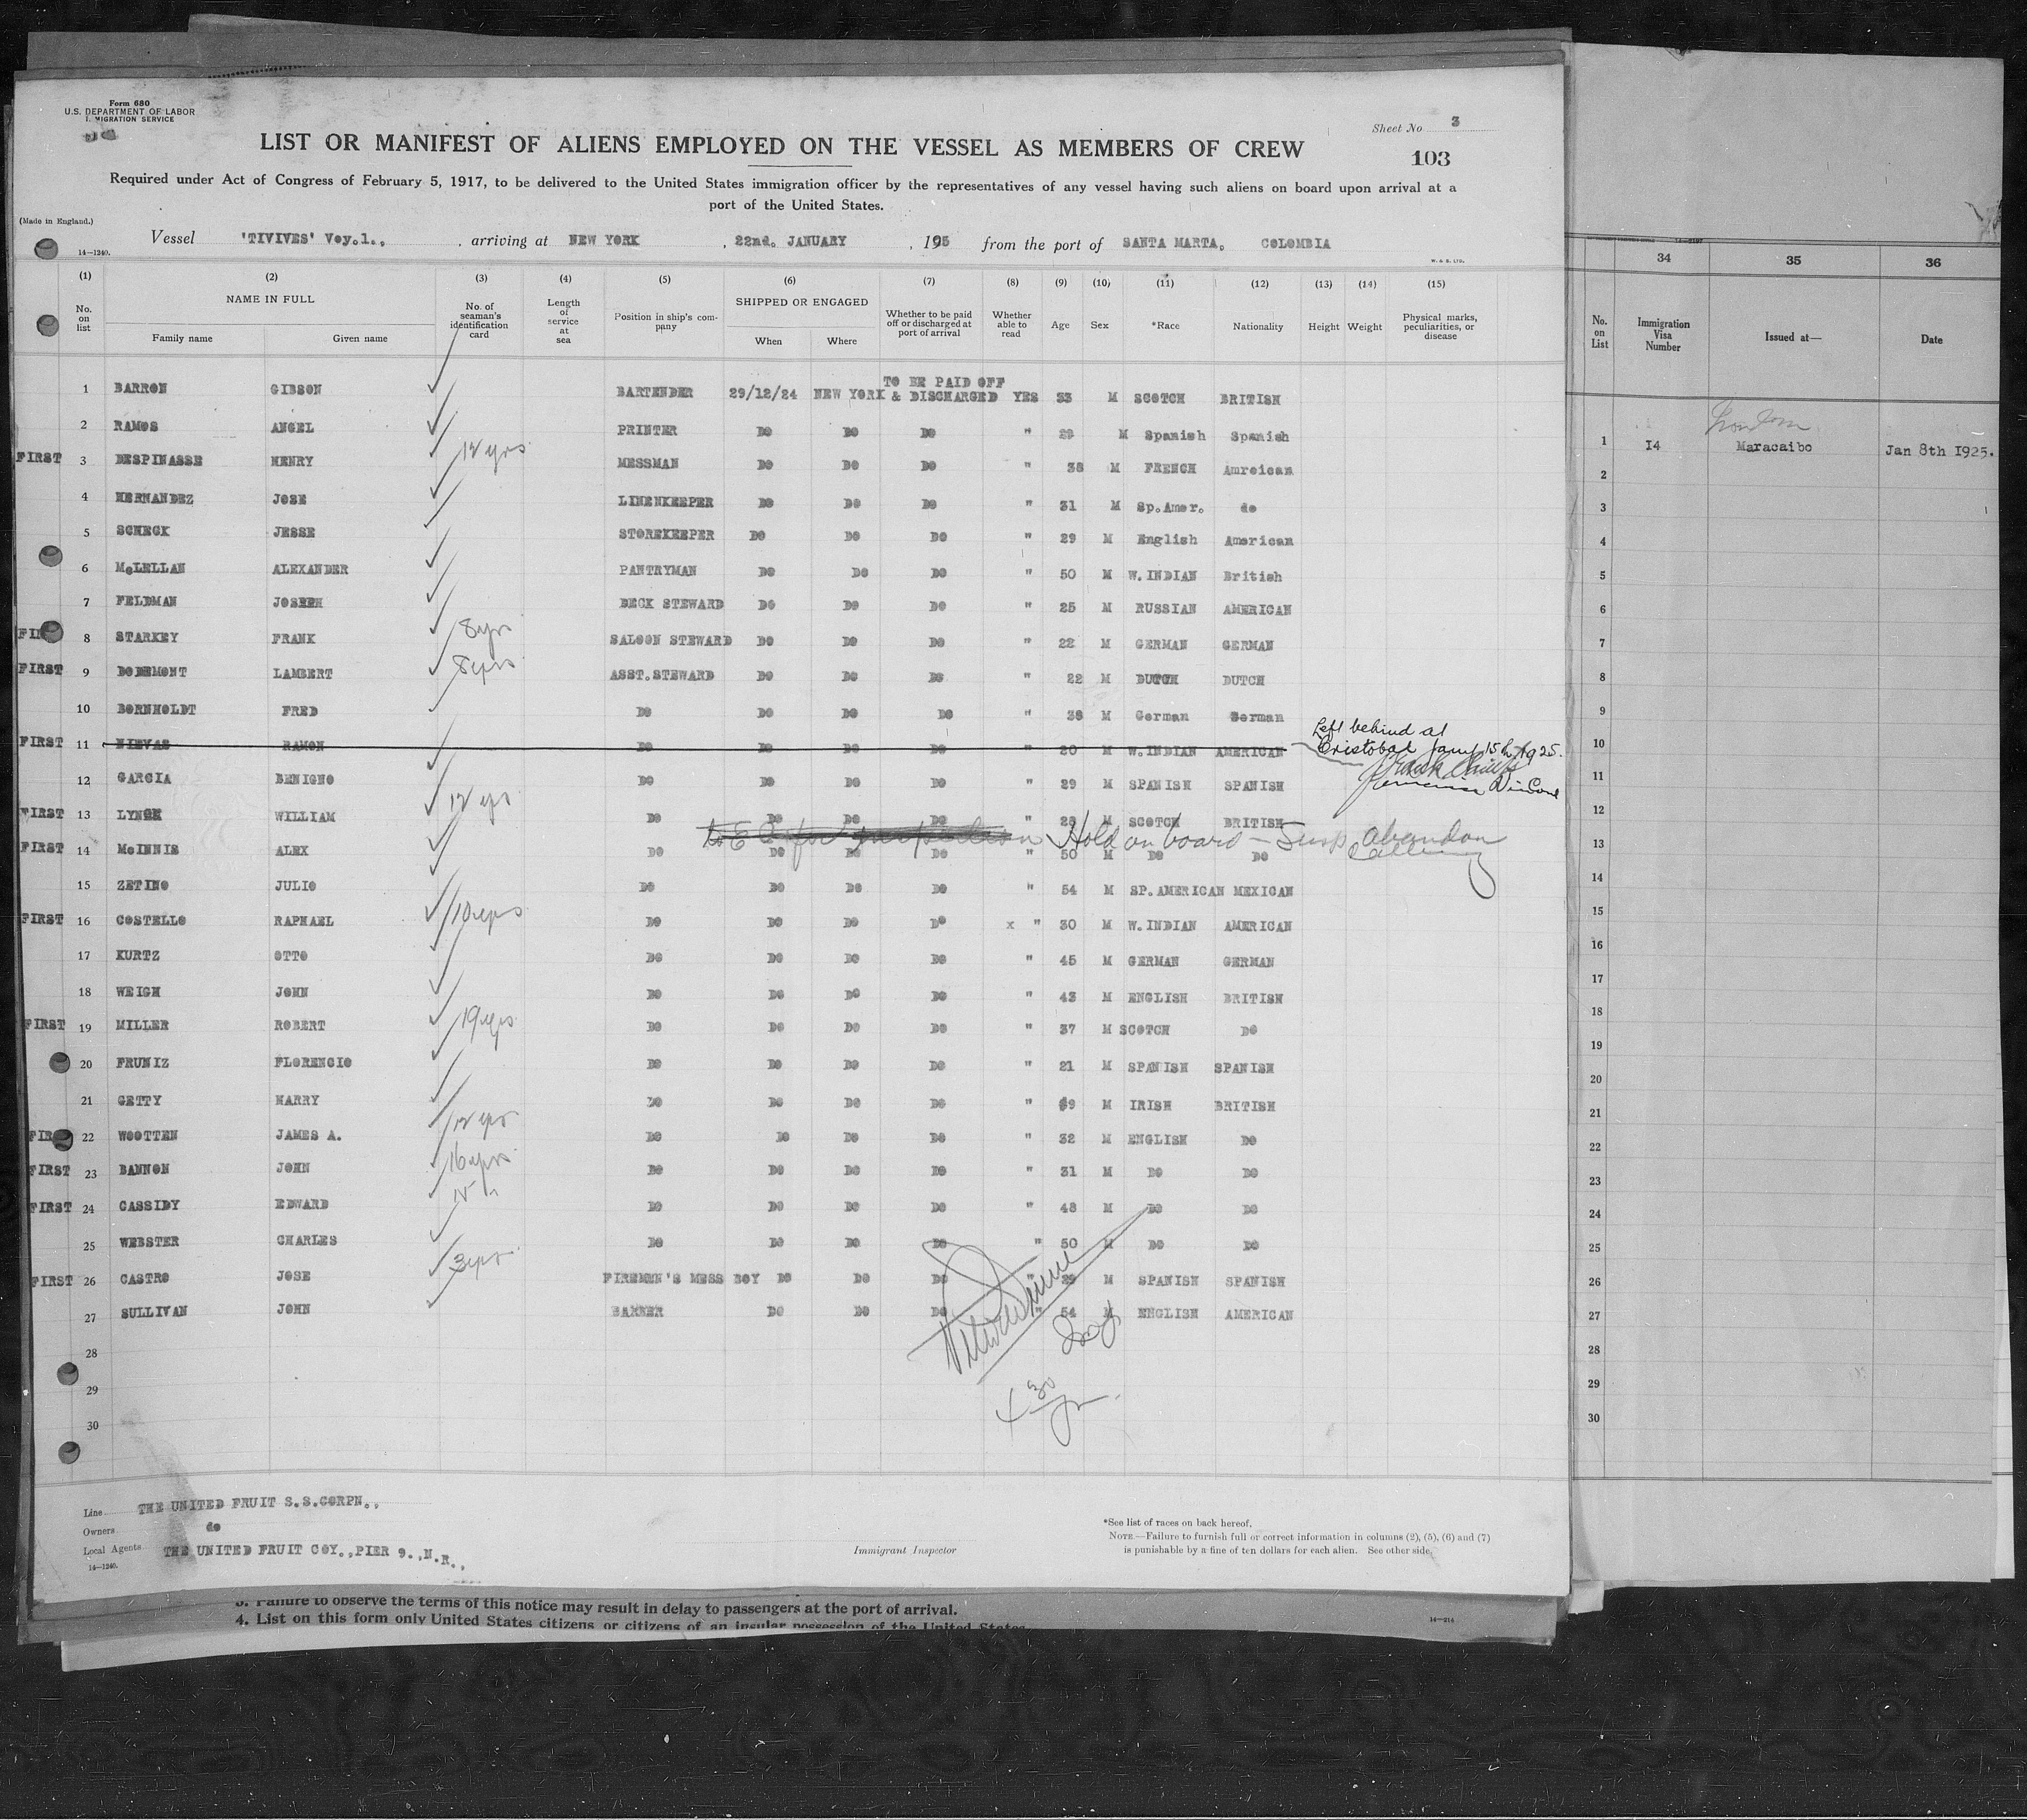 Form 680
U.S. DEPARTMENT OF LABOR
IMMIGRATION SERVICE
Sheet No 3
LIST OR MANIFEST OF ALIENS EMPLOYED ON THE VESSEL AS MEMBERS OF CREW
103
Required under Act of Congress of February 5, 1917, to be delivered to the United States immigration officer by the representatives of any vessel having such aliens on board upon arrival at a
port of the United States.
(Made in England.)
14—1240.
Vessel 'TIVIVES' Voy.1., , arriving at NEW YORK , 22nd. JANUARY , 195 from the port of SANTA MARTA. COLOMBIA
W. & S. LTD.
(1) (2) (3) (4) (5) (6) (7) (8) (9) (10) (11) (12) (13) (14) (15)
No. on list NAME IN FULL Family name Given name No. of seaman's identification card Length of service at sea Position in ship's company SHIPPED OR ENGAGED When Where Whether to be paid off or discharged at port of arrival Whether able to read Age Sex *Race Nationality Height Weight Physical marks, peculiarities, or disease
1 BARRON GIBSON BARTENDER 29/12/24 NEW YORK TO BE PAID OFF & DISCHARGED YES 33 M SCOTCH BRITISH
2 RAMOS ANGEL PRINTER DO DO DO " 29 M Spanish Spanish
FIRST 3 DESPINASSE HENRY 12 yrs MESSMAN DO DO DO " 38 M FRENCH Amreican
4 HERNANDEZ JOSE LINENKEEPER DO DO DO " 31 M Sp.Amer. do
5 SCHECK JESSE STOREKEEPER DO DO DO " 29 M English American
6 McLELLAN ALEXANDER PANTRYMAN DO DO DO " 50 M W.INDIAN British
7 FELDMAN JOSEPH DECK STEWARD DO DO DO " 25 M RUSSIAN AMERICAN
8 STARKEY FRANK 8 yrs SALOON STEWARD DO DO DO " 22 M GERMAN GERMAN
FIRST 9 DODEMONT LAMBERT 8 yrs ASST.STEWARD DO DO DO " 22 M DUTCH DUTCH
10 BORNHOLDT FRED DO DO DO DO " 38 M German German
FIRST 11 NIEVAS RAMON DO DO DO DO 20 M W.INDIAN AMERICAN Left behind at Cristobal Jany 15th 1925.
12 GARCIA BENIGNO DO DO DO DO " 29 M SPANISH SPANISH
FIRST 13 LYNCH WILLIAM 12 yrs DO DO DO DO " 28 M SCOTCH BRITISH
Hold on board – Susp abandon calling
FIRST 14 McINNIS ALEX DO DO DO DO " 50 M DO DO
15 ZETINO JULIO DO DO DO DO " 54 M SP.AMERICAN MEXICAN
FIRST 16 COSTELLO RAPHAEL 10 yrs DO DO DO DO x " 30 M W.INDIAN AMERICAN
17 KURTZ OTTO DO DO DO DO " 45 M GERMAN GERMAN
18 WEIGH JOHN DO DO DO DO " 43 M ENGLISH BRITISH
FIRST 19 MILLER ROBERT 19 yrs DO DO DO DO " 37 M SCOTCH DO
20 FRUNIZ FLORENCIO DO DO DO DO " 21 M SPANISH SPANISH
21 GETTY HARRY DO DO DO DO " 9 M IRISH BRITISH
22 WOOTTEN JAMES A. 12 yrs DO DO DO DO " 32 M ENGLISH DO
FIRST 23 BANNON JOHN 16 yrs DO DO DO DO " 31 M DO DO
FIRST 24 CASSIDY EDWARD DO DO DO DO " 48 M DO DO
25 WEBSTER CHARLES DO DO DO DO " 50 M DO DO
FIRST 26 CASTRO JOSE 3 yrs FIREMEN'S MESS BOY DO DO DO " 29 M SPANISH SPANISH
27 SULLIVAN JOHN BARBER DO DO DO " 54 M ENGLISH AMERICAN
28
29
30
4 30
Line THE UNITED FRUIT S.S.CORPN.,
Owners do
Local Agents THE UNITED FRUIT COY.,PIER 9.,N.R.,
14—1240.
Immigrant Inspector
*See list of races on back hereof.
NOTE.—Failure to furnish full or correct information in columns (2), (5), (6) and (7)
is punishable by a fine of ten dollars for each alien. See other side.
3. Failure to observe the terms of this notice may result in delay to passengers at the port of arrival.
4. List on this form only United States citizens or citizens of an insular possession of the United States
14—214
34 35 36
No. on List Immigration Visa Number Issued at— Date
1 I4 Maracaibo Jan 8th I925.
2
3
4
5
6
7
8
9
10
11
12
13
14
15
16
17
18
19
20
21
22
23
24
25
26
27
28
29
30